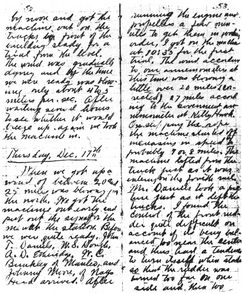 by noon and got the
machine out on the
tracks in front of the
building ready for a
trial from the level.
The wind was gradually
dying and by the time
we were ready was
only about 4 to 5
meters per sec. After
waiting several
to see whether it would
breeze up again we took
the machine in.
Thursday, Dec. 17th
When we got up a
wind of between 20 and
25 miles was blowing from
the north. We got the
machine out early and
put out the signal for the
men at the station. Before
we were quite ready, John
T. Daniels, W. S. Dough,
A. D. Etheridge, W. C.
Brinkley of Manteo, and
Johnny Moore, of Nags
Head arrived. After
running the engine and
propellers a few min-
utes to get them in working
order, I got on the machine
at 10:35 for the first
trial. The wind according
to our anemometers at
this time was blowing a
little over 20 miles
27 miles
to the government
at Kitty Hawk.
On slipping the rope the
machine started off
increasing in speed to
probably 7 or 8 miles. The
machine lifted from the
truck just as it was
entering on the fourth rail.
Mr. Daniels took a pic-
ture just as it left the
tracks. I found the
control of the front rud-
der quite difficult on
account of its being bal-
anced too near the center
and thus had a tendency
to turn itself when started
so that the rudder was
turned too far on one
side and then too